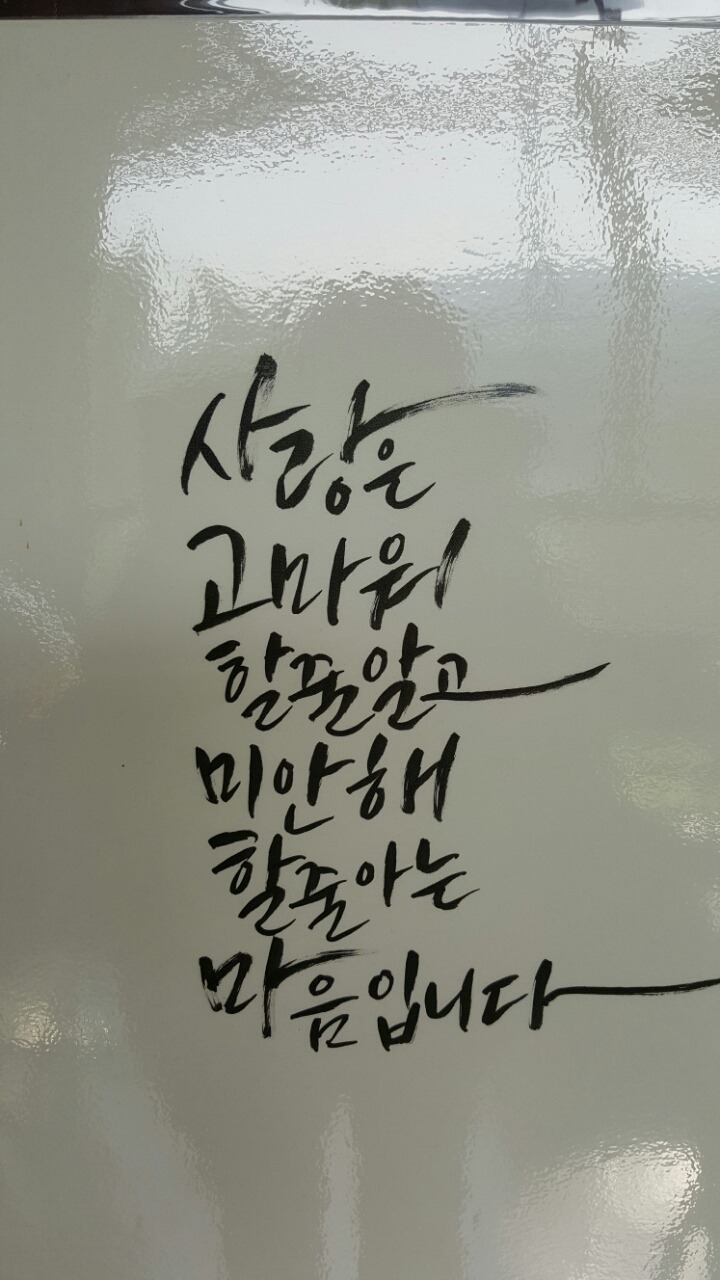 사랑은
고마워
할줄알고
미안해
할줄아는
마음입니다